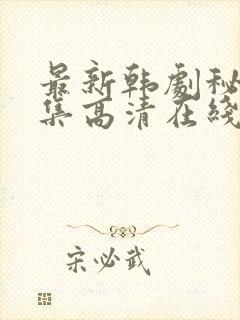 最新韩劇秘
集高清在綫
宋必武